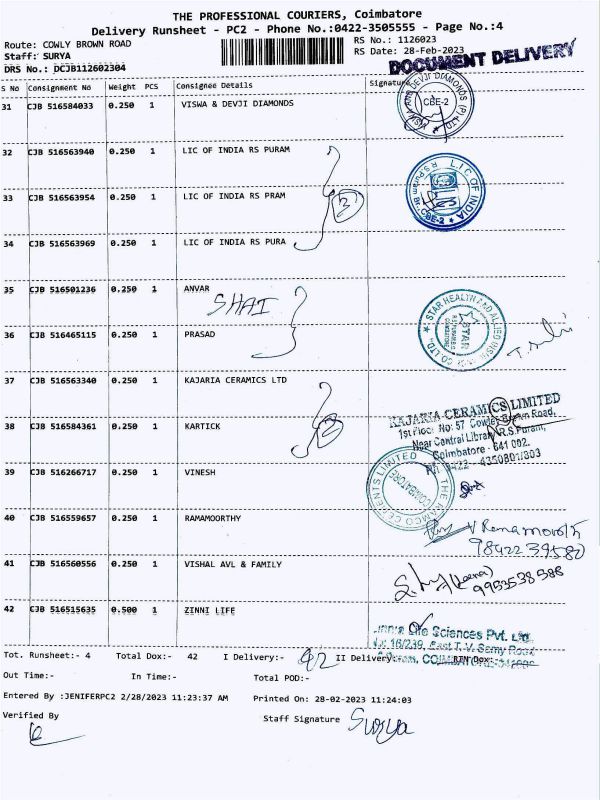 THE PROFESSIONAL COURIERS, Coimbatore
Delivery Runsheet - PC2 - Phone No.:0422-3505555 - Page No.:4
Route: COWLY BROWN ROAD
RS No.: 1126023
Staff: SURYA
RS Date: 28-Feb-2023
DRS No.: DCJB112602304
DOCUMENT DELIVERY
S No Consignment No Weight PCS Consignee Details Signature
31 CJB 516584033 0.250 1 VISWA & DEVJI DIAMONDS
DEVJI DIAMONDS (P) LTD CBE-2
32 CJB 516563940 0.250 1 LIC OF INDIA RS PURAM
33 CJB 516563954 0.250 1 LIC OF INDIA RS PRAM
3
L I C OF INDIA R.S.Puram Br. CBE-2
34 CJB 516563969 0.250 1 LIC OF INDIA RS PURA
35 CJB 516501236 0.250 1 ANVAR
SHAI
STAR HEALTH AND ALLIED CO LTD. STAR
36 CJB 516465115 0.250 1 PRASAD
37 CJB 516563340 0.250 1 KAJARIA CERAMICS LTD
KAJARIA CERAMICS LIMITED
1st Floor No: 57 Cowley Brown Road,
38 CJB 516584361 0.250 1 KARTICK
Near Central Library, R.S.Puram,
Coimbatore - 641 002.
Ph: 0422 - 4350801/803
39 CJB 516266717 0.250 1 VINESH
THE RAMCO CEMENTS LIMITED COIMBATORE
40 CJB 516559657 0.250 1 RAMAMOORTHY
V Ramamoorthy
41 CJB 516560556 0.250 1 VISHAL AVL & FAMILY
42 CJB 516515635 0.500 1 ZINNI LIFE
Life Sciences Pvt. Ltd.
16/239, East T. V. Samy Road
Tot. Runsheet:- 4 Total Dox:- 42 I Delivery:- 42 II Delivery:- RTN Dox:-
Out Time:- In Time:- Total POD:-
Entered By :JENIFERPC2 2/28/2023 11:23:37 AM Printed On: 28-02-2023 11:24:03
Verified By
Staff Signature Surya